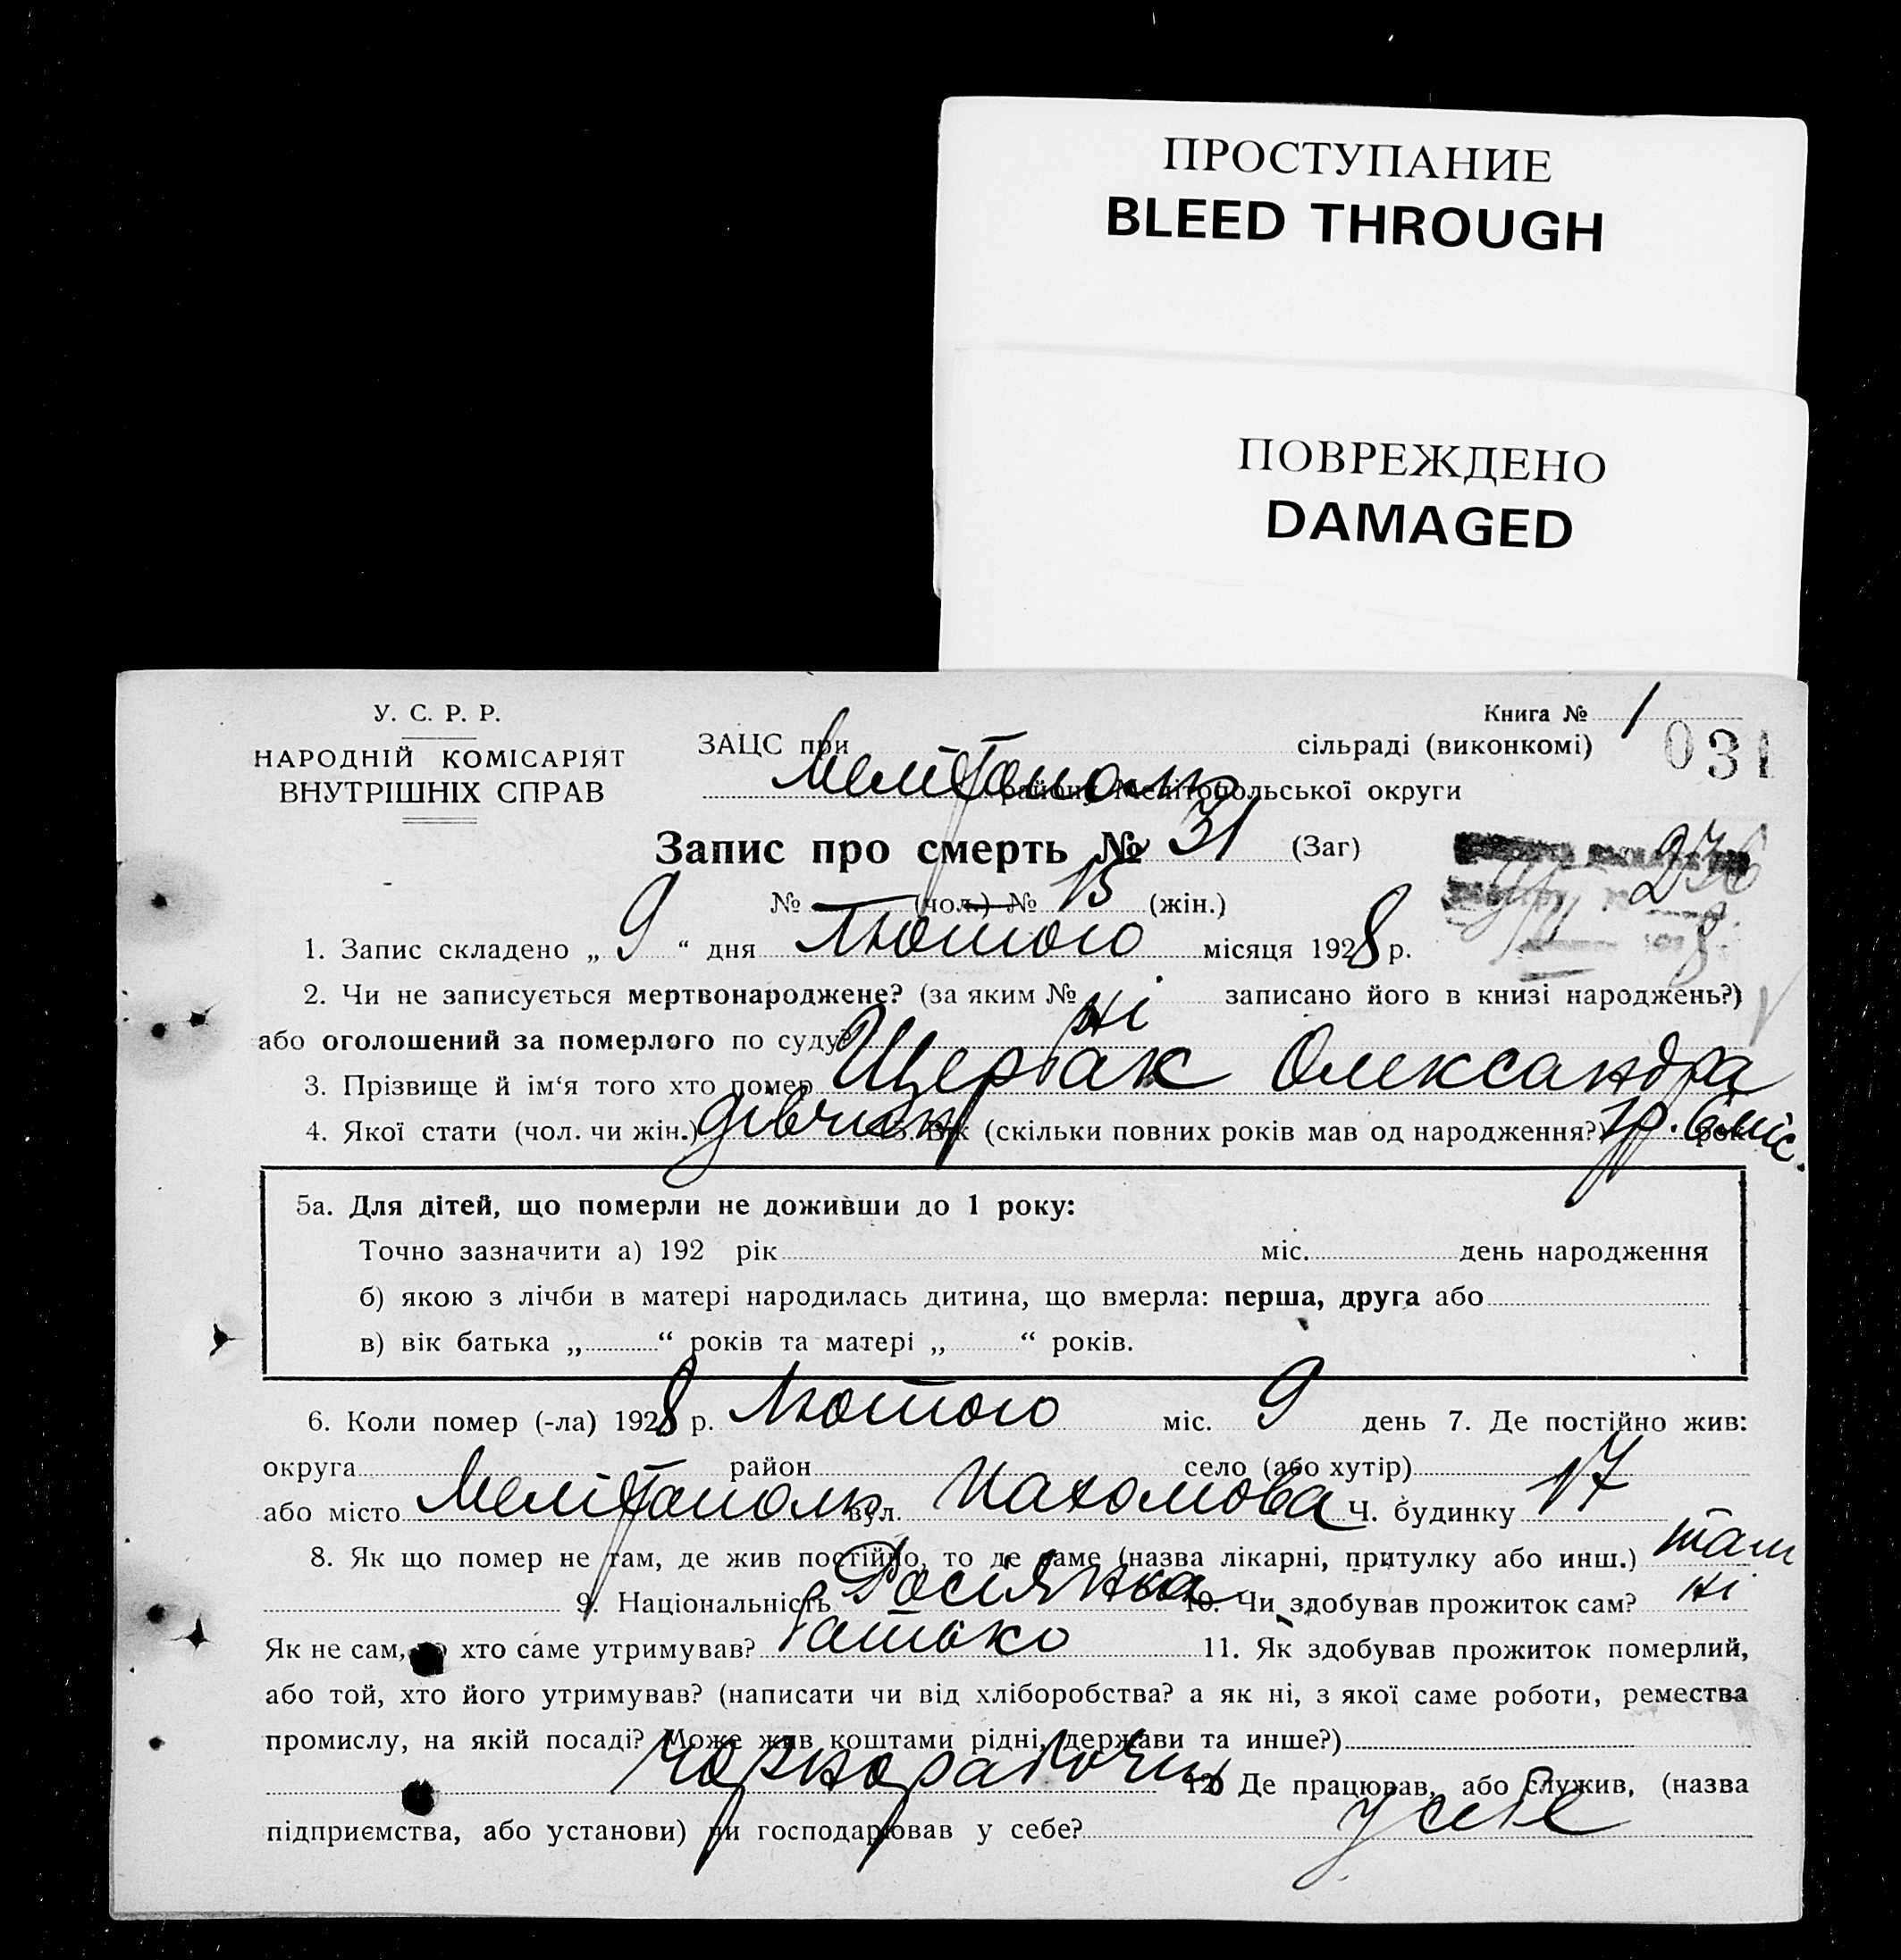 ПРОСТУПАНИЕ
BLEED THROUGH
ПОВРЕЖДЕНО
DAMAGED
У. С. Р. Р.
НАРОДНІЙ КОМІСАРІЯТ
ВНУТРІШНІХ СПРАВ
Книга № 1
031
ЗАЦС при сільраді (виконкомі)
Мелітополь району Мелітопольської округи
Запис про смерть № 31 (Заг)
236
№ (чол.) № 15 (жін.)
1. Запис складено „ 9 “ дня Лютого місяця 1928 р.
2. Чи не записується мертвонароджене? (за яким № ні записано його в книзі народжень?)
або оголошений за померлого по суду?
3. Прізвище й ім‘я того хто помер Щербак Олександра
4. Якої стати (чол. чи жін.) дівчина 5. Вік (скільки повних років мав од народження?) 1р. 6 міс.
5а. Для дітей, що померли не доживши до 1 року:
Точно зазначити а) 192 рік міс. день народження
б) якою з лічби в матері народилась дитина, що вмерла: перша, друга або
в) вік батька „ “ років та матері „ “ років.
6. Коли помер (-ла) 1928 р. Лютого міс. 9 день 7. Де постійно жив:
округа район село (або хутір)
або місто Мелітополь вул. Пахомова Ч. будинку 17
8. Як що помер не там, де жив постійно, то де саме (назва лікарні, притулку або инш.) там
9. Національність Росіянка 10. Чи здобував прожиток сам? ні
Як не сам, хто саме утримував? батько 11. Як здобував прожиток померлий,
або той, хто його утримував? (написати чи від хліборобства? а як ні, з якої саме роботи, ремества
промислу, на якій посаді? Може жив коштами рідні, держави та инше?)
чорнорабочий 12. Де працював, або служив, (назва
підприємства, або установи) чи господарював у себе? у себе